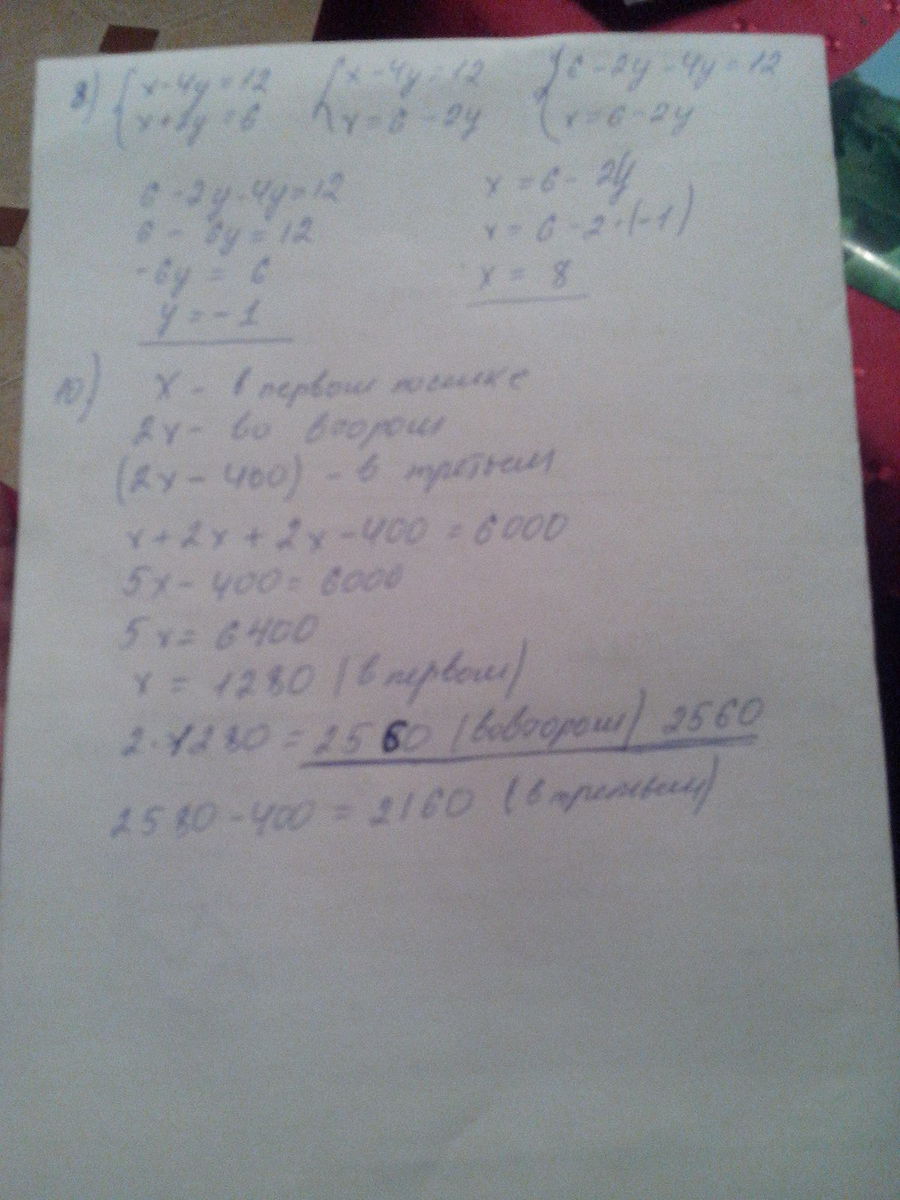 8) { x-4y=12 { x-4y=12 { 6-2y-4y=12
x+2y=6 x=6-2y x=6-2y
6-2y-4y=12 x=6-2y
6-6y=12 x=6-2·(-1)
-6y=6 x=8
y=-1
10) x - в первом посылке
2x - во втором
(2x-400) - в третьем
x+2x+2x-400=6000
5x-400=6000
5x=6400
x=1280 (в первом)
2·1280=2560 (во втором) 2560
2580-400=2160 (в третьем)